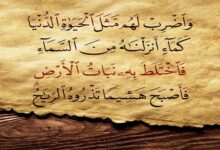 وَٱضْرِبْ لَهُم مَّثَلَ ٱلْحَيَوٰةِ ٱلدُّنْيَا
كَمَآءٍ أَنزَلْنَٰهُ مِنَ ٱلسَّمَآءِ
فَٱخْتَلَطَ بِهِۦ نَبَاتُ ٱلْأَرْضِ
فَأَصْبَحَ هَشِيمًا تَذْرُوهُ ٱلرِّيَٰحُ